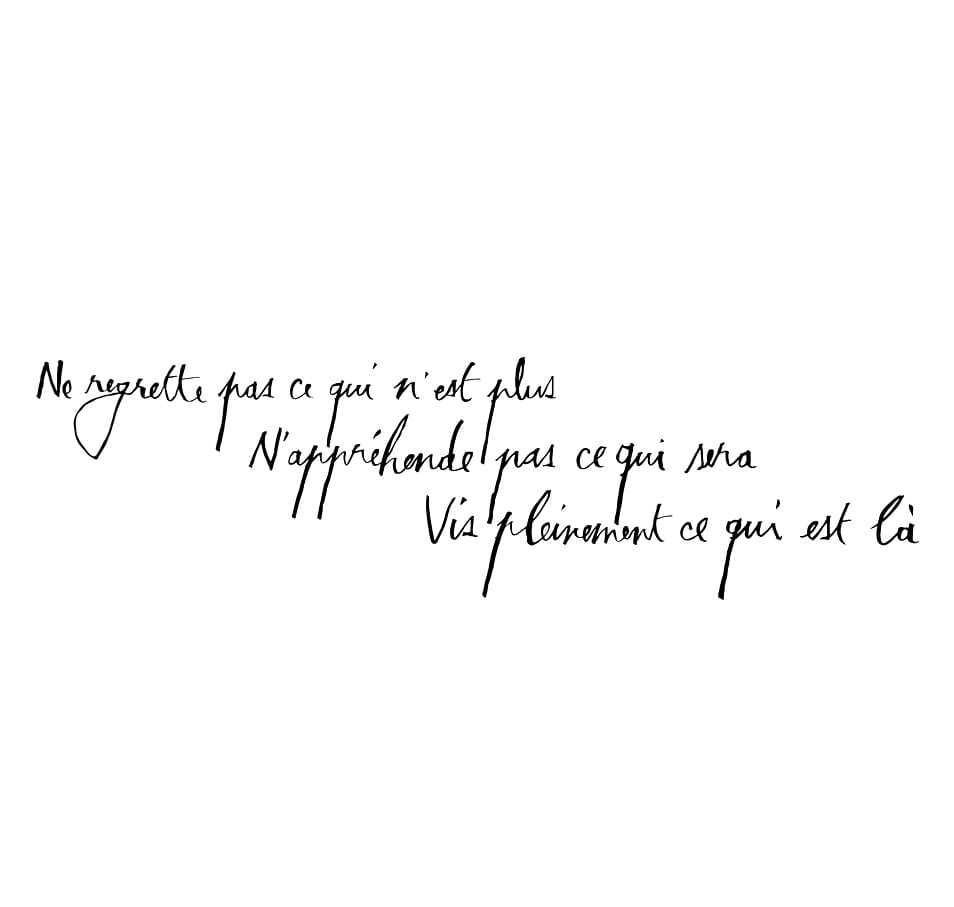 Ne regrette pas ce qui n'est plus
N'appréhende pas ce qui sera
Vis pleinement ce qui est là